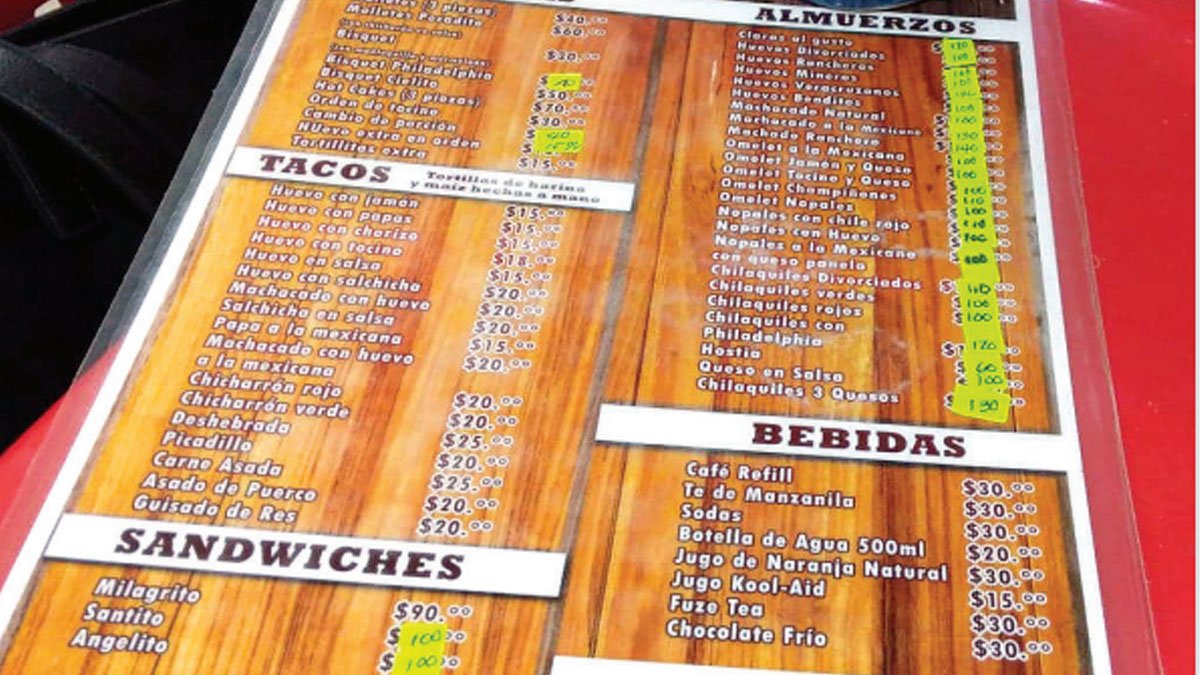 Molletes Posadita $60.00
Bisquet $20.00
Bisquet Philadelphia
Bisquet Cielito $50.00
Hot Cakes (3 piezas) $70.00
Orden de tocino $30.00
Cambio de porción
HUevo extra en orden
Tortillitas extra $15.00
TACOS
Tortillas de harina
y maíz hechas a mano
Huevo con jamón $15.00
Huevo con papas $15.00
Huevo con chorizo $15.00
Huevo con tocino $18.00
Huevo en salsa $15.00
Huevo con salchicha $20.00
Machacado con huevo $20.00
Salchicha en salsa $20.00
Papa a la mexicana $15.00
Machacado con huevo $20.00
a la mexicana
Chicharrón rojo $20.00
Chicharrón verde $20.00
Deshebrada $25.00
Picadillo $20.00
Carne Asada $25.00
Asado de Puerco $20.00
Guisado de Res $20.00
SANDWICHES
Milagrito $90.00
Santito $100
Angelito $100
ALMUERZOS
Claras al gusto
Huevos Divorciados
Huevos Rancheros
Huevos Mineros
Huevos Veracruzanos
Huevos Benditos
Machacado Natural
Machacado a la Mexicana
Machado Ranchero
Omelet a la Mexicana
Omelet Jamón y Queso
Omelet Tocino y Queso
Omelet Champiñones
Omelet Nopales
Nopales con chile rojo
Nopales con Huevo
Nopales a la Mexicana
con queso panela
Chilaquiles Divorciados
Chilaquiles verdes 100
Chilaquiles rojos 100
Chilaquiles con
Philadelphia 120
Hostia 60
Queso en Salsa 100
Chilaquiles 3 Quesos 130
BEBIDAS
Café Refill $30.00
Te de Manzanila $30.00
Sodas $30.00
Botella de Agua 500ml $20.00
Jugo de Naranja Natural $30.00
Jugo Kool-Aid $15.00
Fuze Tea $30.00
Chocolate Frío $30.00